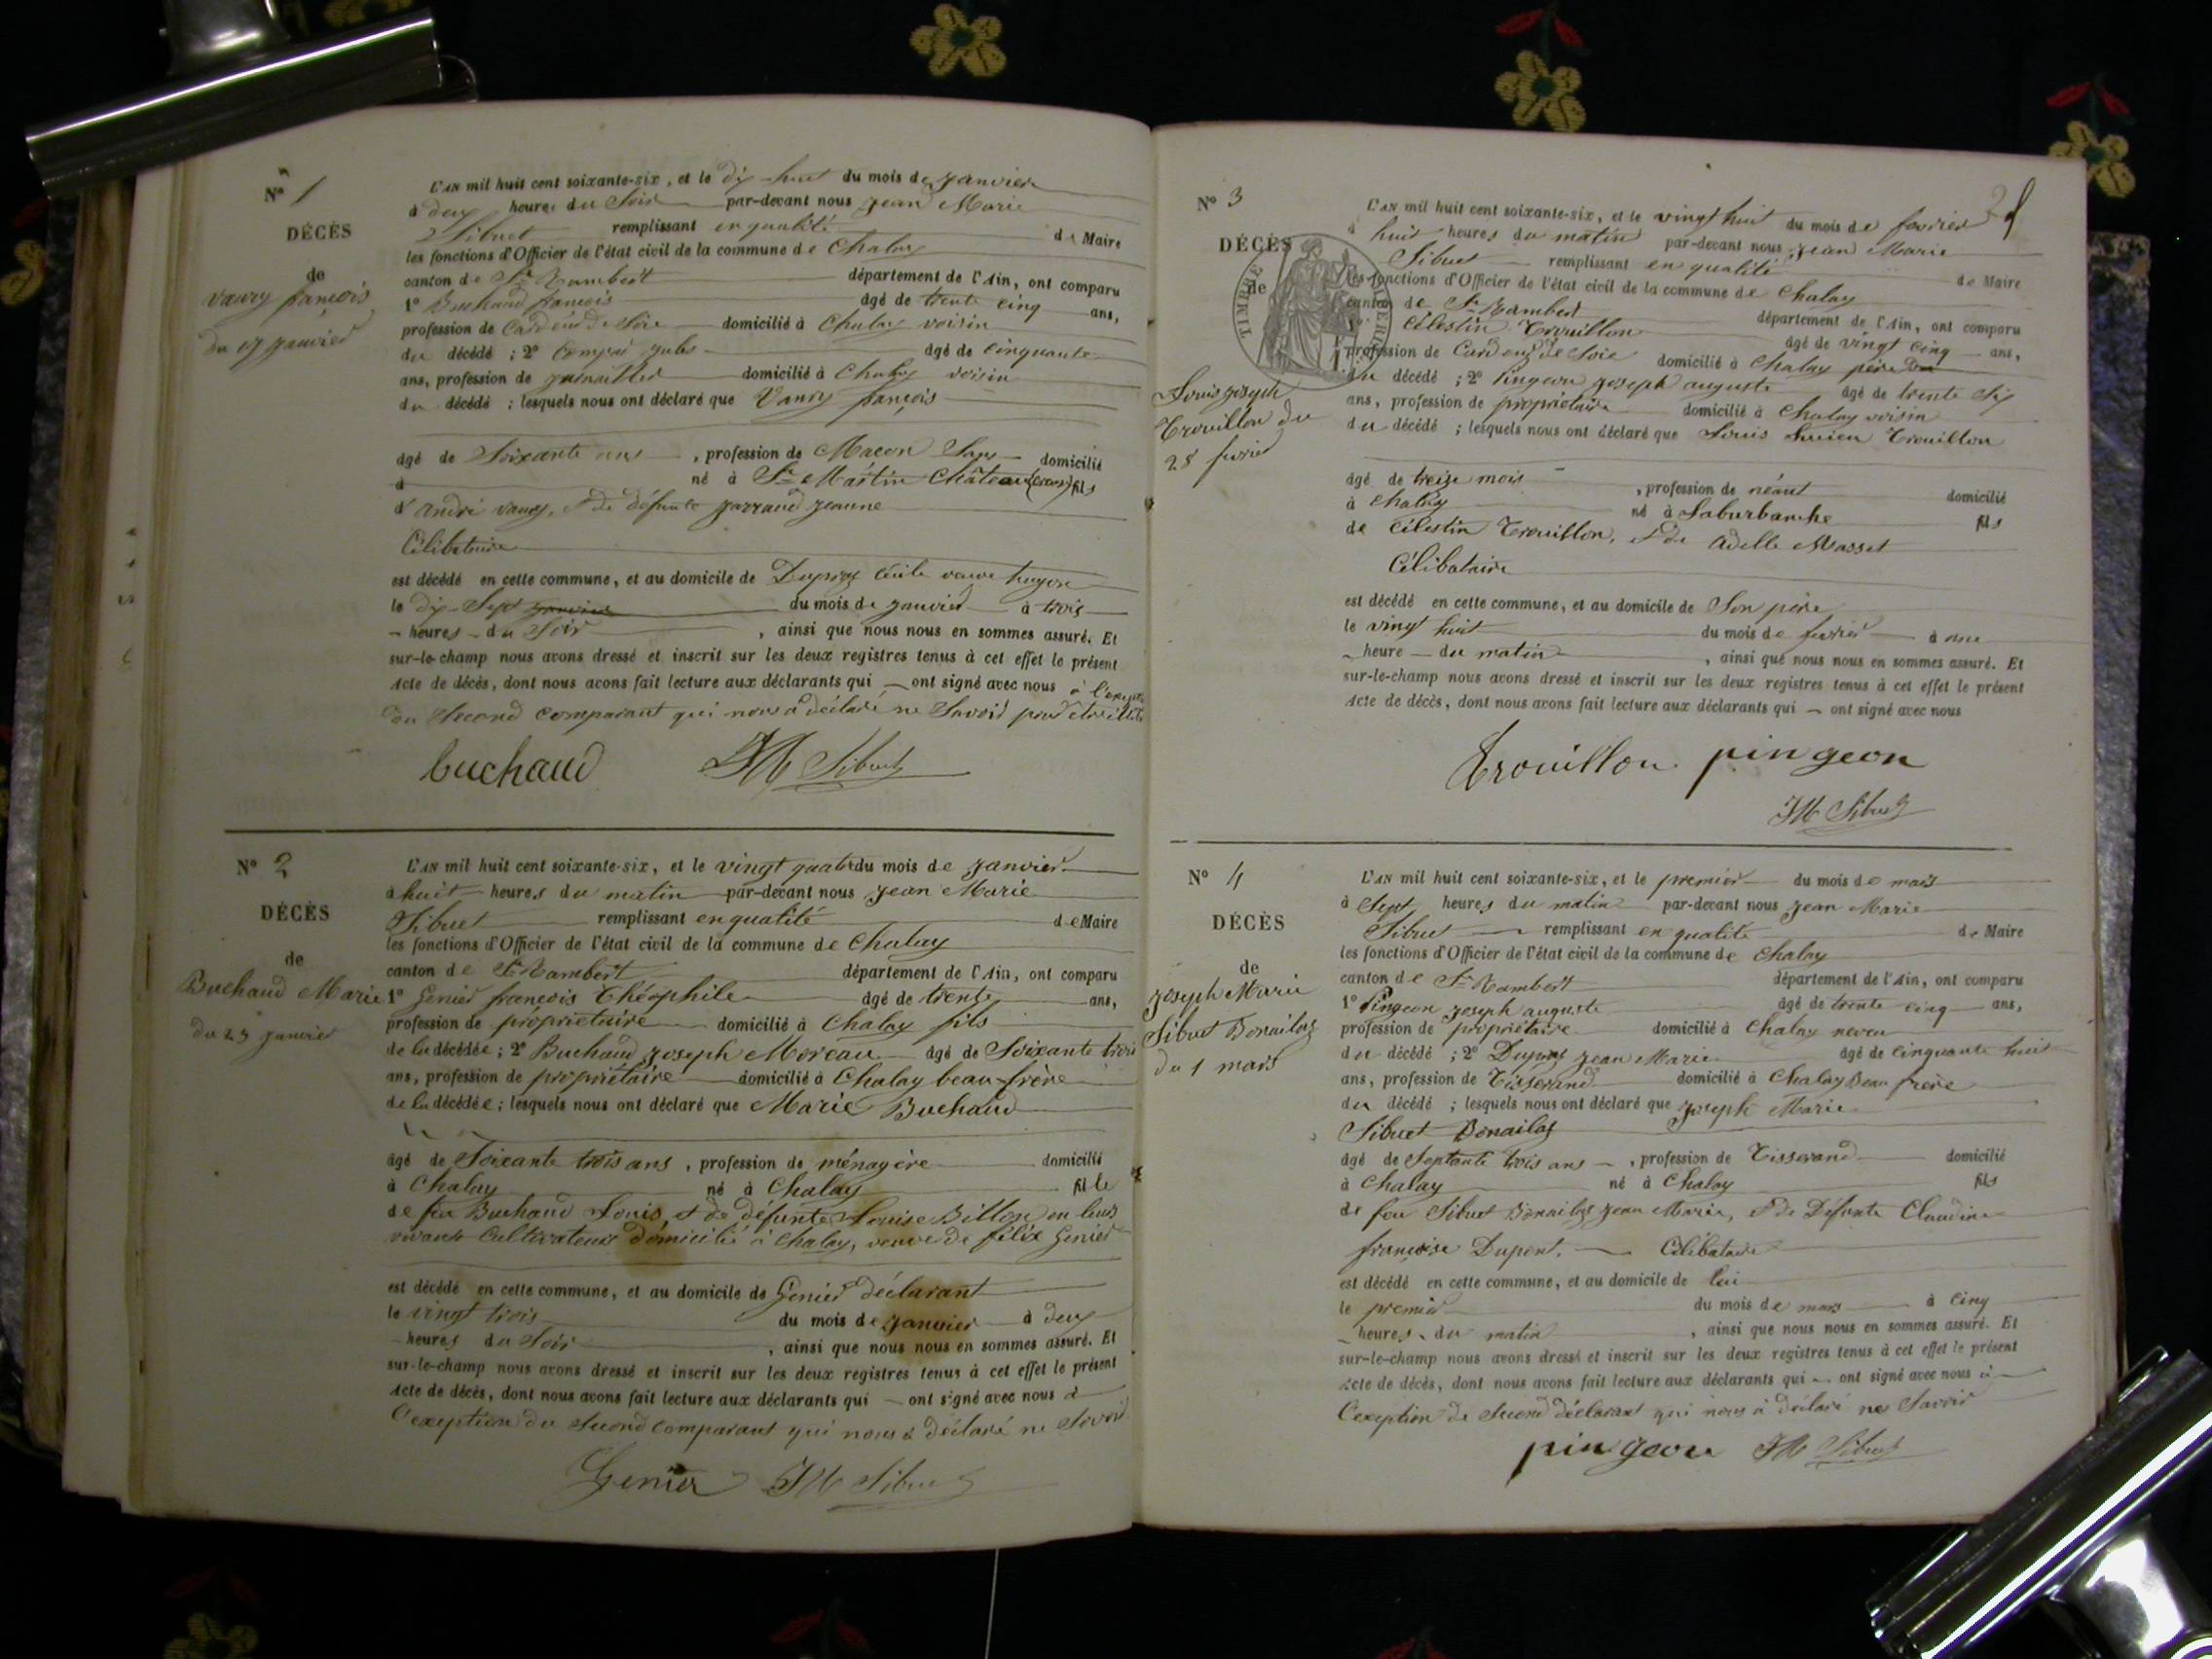 N° 1
DÉCÈS
de
Vaury françois
du 17 janvier
L'AN mil huit cent soixante-six, et le dix-huit du mois de janvier
à deux heures du Soir par-devant nous Jean Marie
Sibuet remplissant en qualité de Maire
les fonctions d'Officier de l'état civil de la commune de Chaley
canton de St Rambert département de l'Ain, ont comparu
1° Buchaud françois âgé de trente cinq ans,
profession de Cardeur de Soie domicilié à Chaley voisin
du décédé ; 2° jules âgé de cinquante
ans, profession de domicilié à Chaley voisin
du décédé ; lesquels nous ont déclaré que Vaury françois
âgé de Soixante ans, profession de Macon Sans domicilié
à né à St Martin Château (creuse) fils
d'André Vaury, et de défunte jarraud jeanne
Célibataire
est décédé en cette commune, et au domicile de Dupraz Cécile veuve hugon
le dix-Sept janvier du mois de janvier à trois
heures du Soir, ainsi que nous nous en sommes assuré. Et
sur-le-champ nous avons dressé et inscrit sur les deux registres tenus à cet effet le présent
Acte de décès, dont nous avons fait lecture aux déclarants qui ont signé avec nous à l'exeption
du Second comparant qui nous a déclaré ne Savoir pour être illétré
buchaud JM Sibuet
N° 2
DÉCÈS
de
Buchaud Marie
du 23 janvier
L'AN mil huit cent soixante-six, et le vingt quatre du mois de janvier
à huit heures du matin par-devant nous Jean Marie
Sibuet remplissant en qualité de Maire
les fonctions d'Officier de l'état civil de la commune de Chaley
canton de St Rambert département de l'Ain, ont comparu
1° Genier françois Théophile âgé de trente ans,
profession de propriétaire domicilié à Chaley fils
de la décédée ; 2° Buchaud joseph Moreau âgé de Soixante trois
ans, profession de propriétaire domicilié à Chaley beau-frère
de la décédée ; lesquels nous ont déclaré que Marie Buchaud
âgé de Soixante trois ans, profession de ménagère domicilié
à Chaley né à Chaley fille
de feu Buchaud Louis, et de défunte Louise Billon en leurs
vivant Cultivateurs domicilié à Chaley, veuve de félix Genier
est décédé en cette commune, et au domicile de Genier déclarant
le vingt trois du mois de janvier à deux
heures du Soir, ainsi que nous nous en sommes assuré. Et
sur-le-champ nous avons dressé et inscrit sur les deux registres tenus à cet effet le présent
Acte de décès, dont nous avons fait lecture aux déclarants qui ont signé avec nous à
l'exeption du Second comparant qui nous a déclaré ne Savoir
Genier JM Sibuet
N° 3
DÉCÈS
de
TIMBRE
Louis joseph
Trouillon du
28 fevrier
L'AN mil huit cent soixante-six, et le vingt huit du mois de fevrier
à huit heures du matin par-devant nous Jean Marie
Sibuet remplissant en qualité de Maire
les fonctions d'Officier de l'état civil de la commune de Chaley
canton de St Rambert département de l'Ain, ont comparu
1° Célestin Trouillon âgé de vingt cinq ans,
profession de Cardeur de Soie domicilié à Chaley père du
du décédé ; 2° Pingeon joseph auguste âgé de trente Six
ans, profession de propriétaire domicilié à Chaley voisin
du décédé ; lesquels nous ont déclaré que Louis Lucien Trouillon
âgé de treize mois, profession de néant domicilié
à Chaley né à Laburbanche fils
de Célestin Trouillon, et de Adelle Masset
Célibataire
est décédé en cette commune, et au domicile de Son père
le vingt huit du mois de fevrier à une
heure du matin, ainsi que nous nous en sommes assuré. Et
sur-le-champ nous avons dressé et inscrit sur les deux registres tenus à cet effet le présent
Acte de décès, dont nous avons fait lecture aux déclarants qui ont signé avec nous
Trouillon pingeon
JM Sibuet
N° 4
DÉCÈS
de
Joseph Marie
Sibuet Bonailas
du 1 mars
L'AN mil huit cent soixante-six, et le premier du mois de mars
à Sept heures du matin par-devant nous Jean Marie
Sibuet remplissant en qualité de Maire
les fonctions d'Officier de l'état civil de la commune de Chaley
canton de St Rambert département de l'Ain, ont comparu
1° Pingeon joseph auguste âgé de trente cinq ans,
profession de propriétaire domicilié à Chaley neveu
du décédé ; 2° Dupraz jean Marie âgé de cinquante huit
ans, profession de Tisserand domicilié à Chaley Beau frère
du décédé ; lesquels nous ont déclaré que Joseph Marie
Sibuet Bonailas
âgé de Septante trois ans, profession de Tisserand domicilié
à Chaley né à Chaley fils
de feu Sibuet Bonailas jean Marie, et de Défunte Claudine
françoise Dupont. Célibataire
est décédé en cette commune, et au domicile de lui
le premier du mois de mars à cinq
heures du matin, ainsi que nous nous en sommes assuré. Et
sur-le-champ nous avons dressé et inscrit sur les deux registres tenus à cet effet le présent
Acte de décès, dont nous avons fait lecture aux déclarants qui ont signé avec nous à
l'exeption de Second déclarant qui nous a déclaré ne Savoir
pingeon JM Sibuet